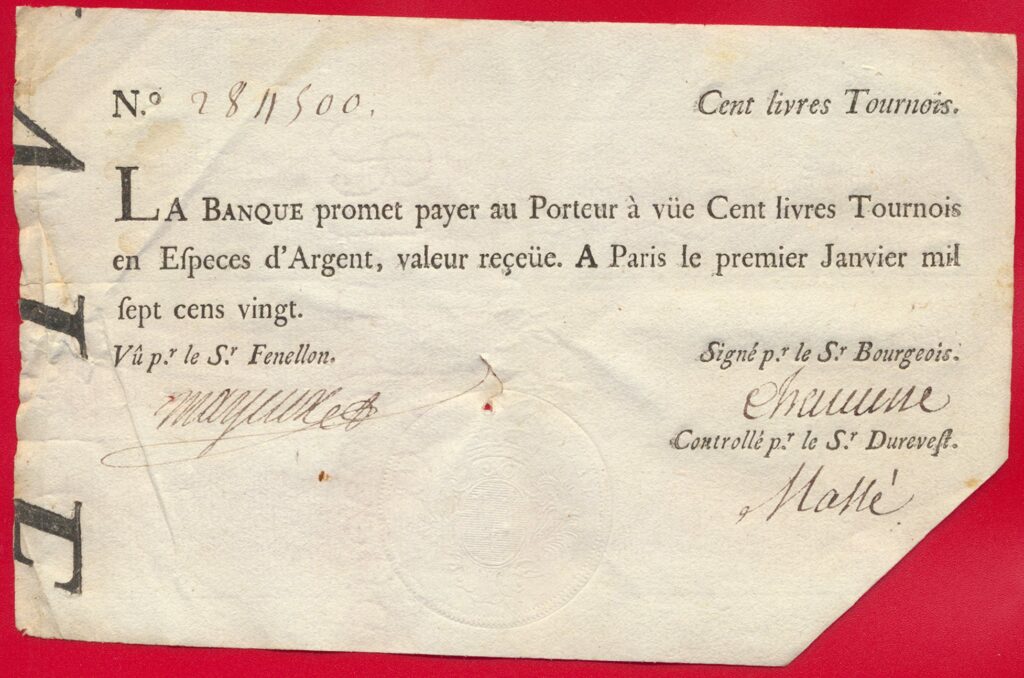 N.º 284500. Cent livres Tournois.
LA BANQUE promet payer au Porteur à vüe Cent livres Tournois
en Eſpeces d'Argent, valeur reçeüe. A Paris le premier Janvier mil
ſept cens vingt.
Vû p.r le S.r Fenellon. Signé p.r le S.r Bourgeois.
Controllé p.r le S.r Dureveſt.